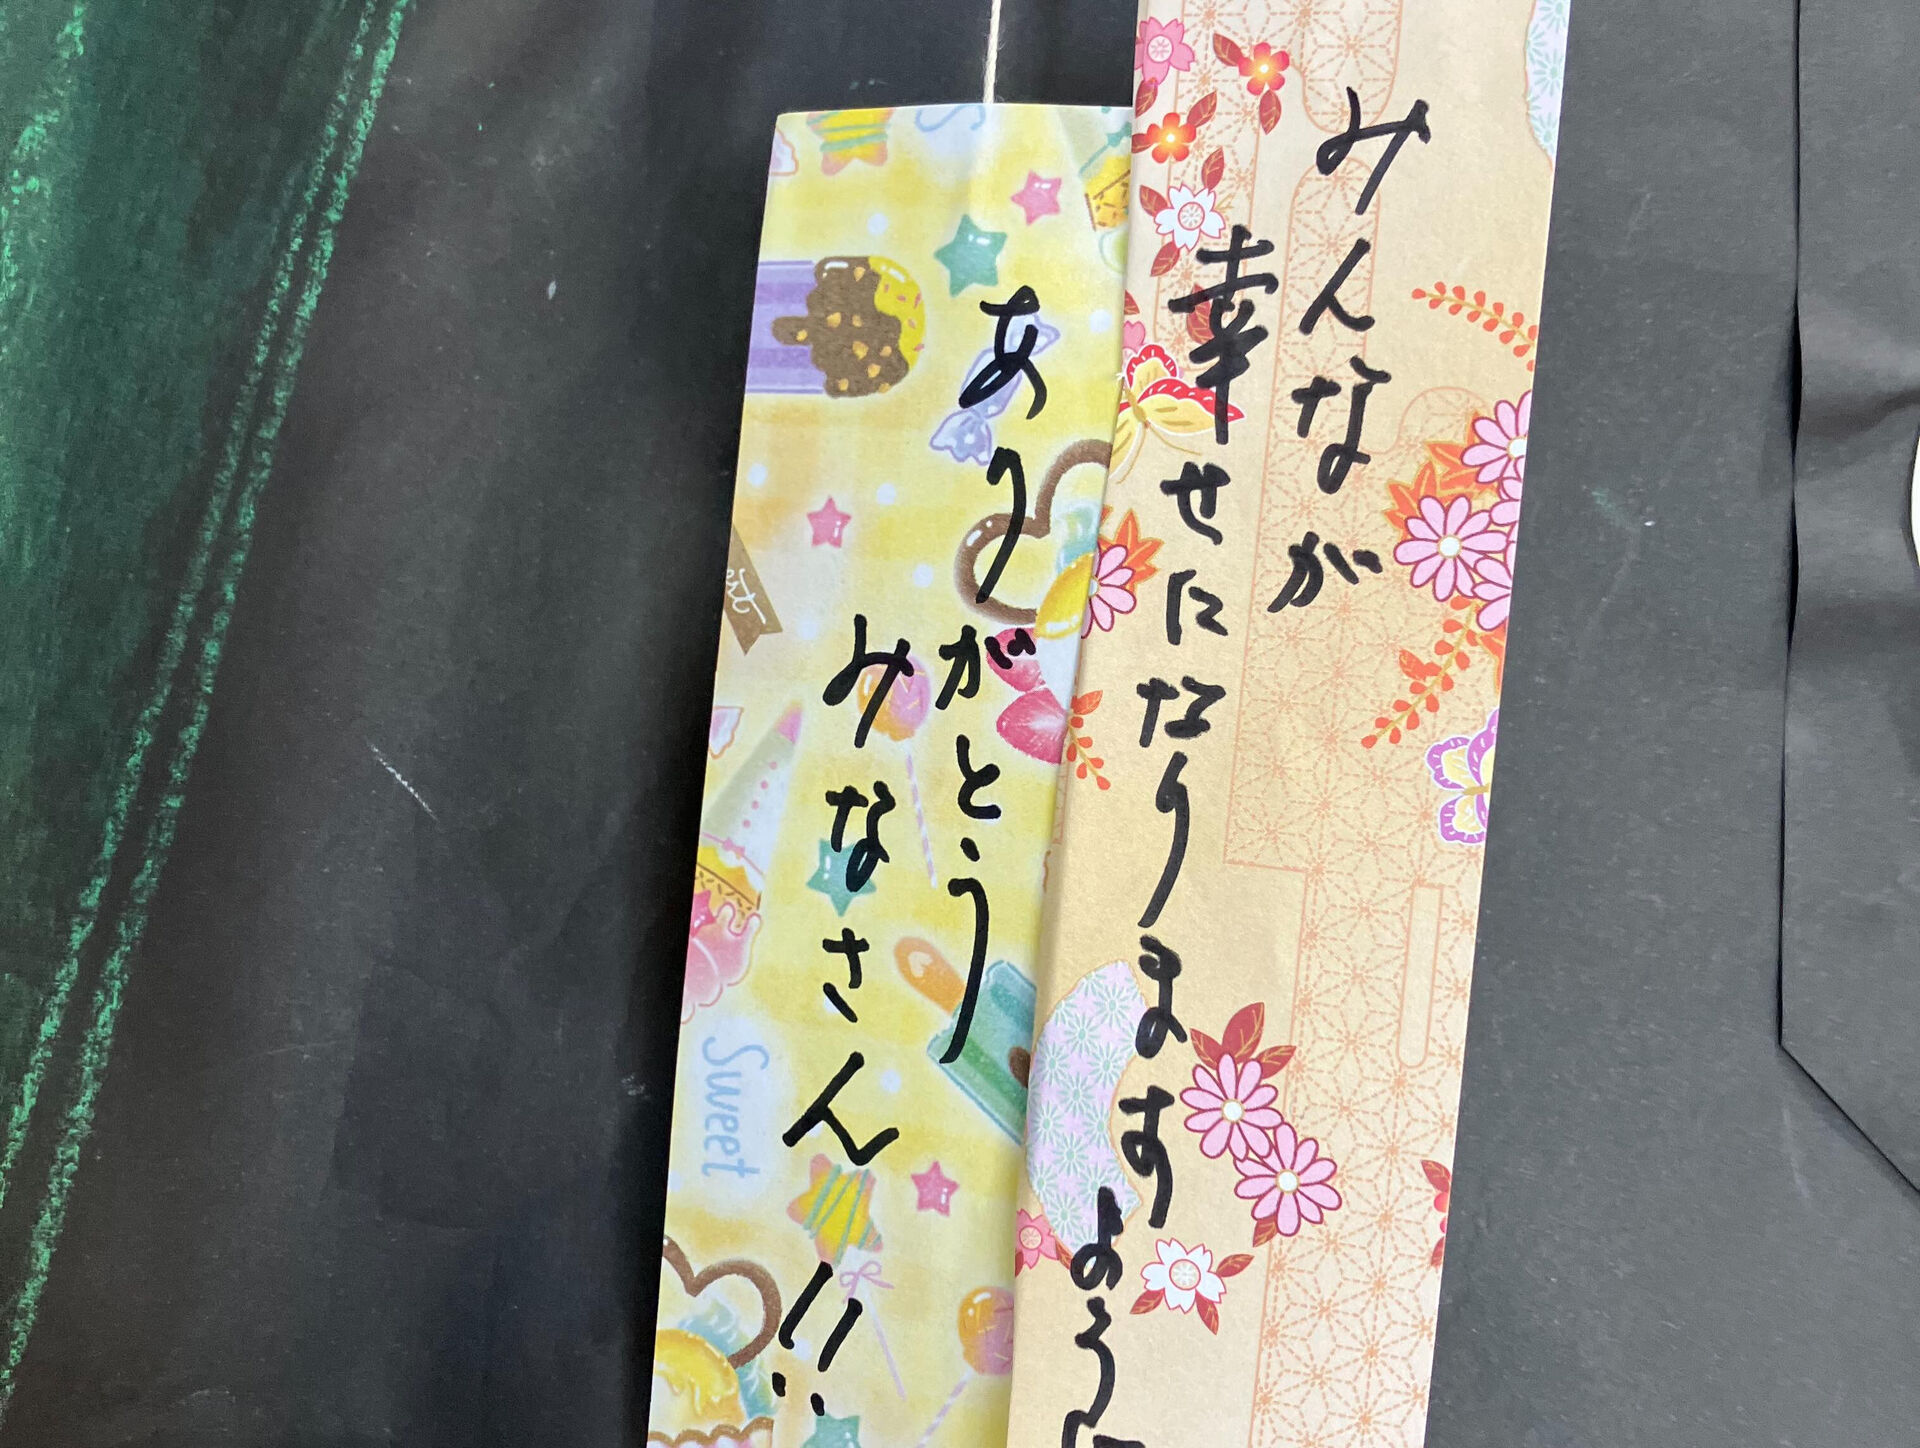 みんなが
幸せになりますように
ありがとう
みなさん!!
Sweet